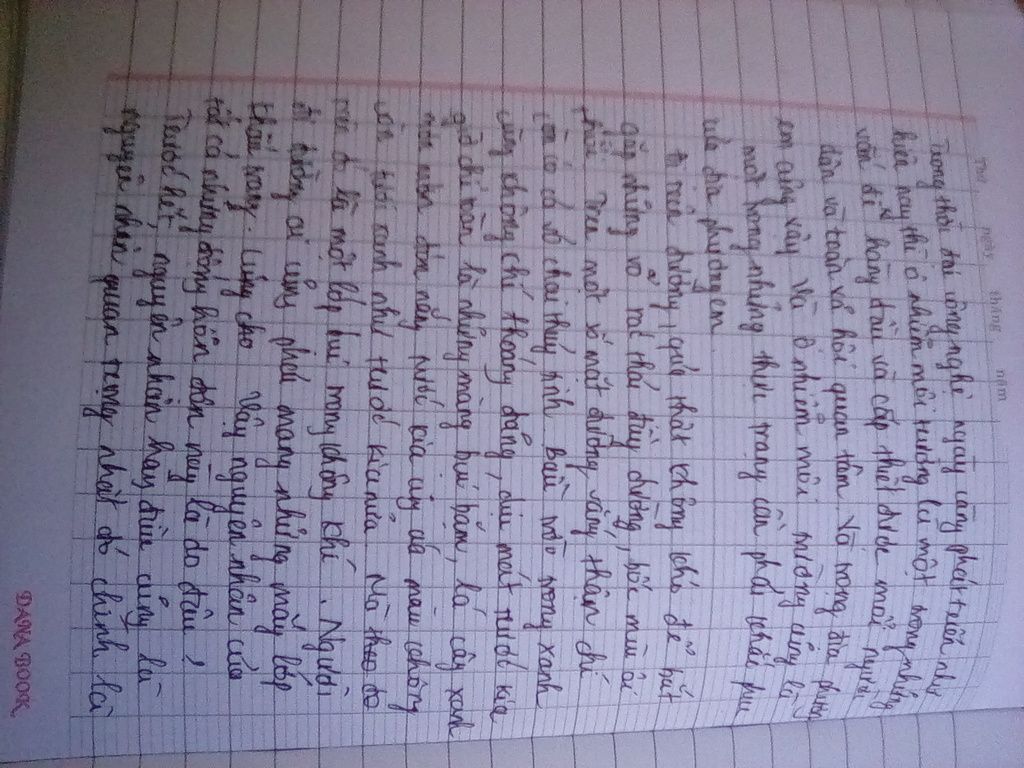 Thứ ngày tháng năm
Trong thời đại công nghệ ngày càng phát triển như
hiện nay thì ô nhiễm môi trường là một trong những
vấn đề hàng đầu và cấp thiết được mỗi người
dân và toàn xã hội quan tâm. Và trong địa phương
em cũng vậy. Và ô nhiễm môi trường cũng là
một trong những thực trạng cần phải khắc phục
của địa phương em.
Đi trên đường, quả thật không khó để bắt
gặp những vỏ rác thải đầy đường, bốc mùi ôi
thối. Trên một số mặt đường vắng thậm chí
còn có cả vỏ chai thủy tinh. Bầu trời trong xanh
cũng không chỉ thoáng đãng, dịu mát trước kia
giờ chỉ toàn là những mảng bụi bám, lá cây xanh
mơn mởn đón nắng mới kia cũng đã màu không
còn tươi xanh như trước kia nữa. Mà theo đó
trên đó là một lớp bụi trong không khí. Người
đi đường ai cũng phải mang những mấy lớp
khẩu trang. Vậy nguyên nhân của
tất cả những đống hỗn độn này là do đâu?
Trước hết, nguyên nhân hay điều cũng là
nguyên nhân quan trọng nhất đó chính là
DANA BOOK